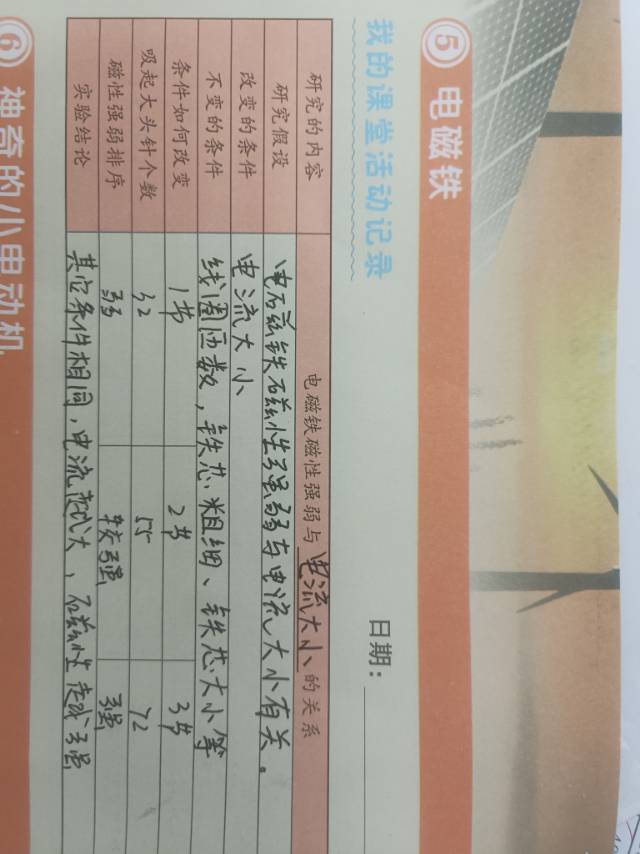 5 电磁铁
我的课堂活动记录 日期：
研究的内容 电磁铁磁性强弱与电流大小的关系
研究假设 电磁铁磁性强弱与电流大小有关。
改变的条件 电流大小
不变的条件 线圈匝数，铁芯粗细、铁芯大小等
条件如何改变 1节 2节 3节
吸起大头针个数 32 55 72
磁性强弱排序 弱 较强 强
实验结论 其它条件相同，电流越大，磁性越强
6 神奇的小电动机